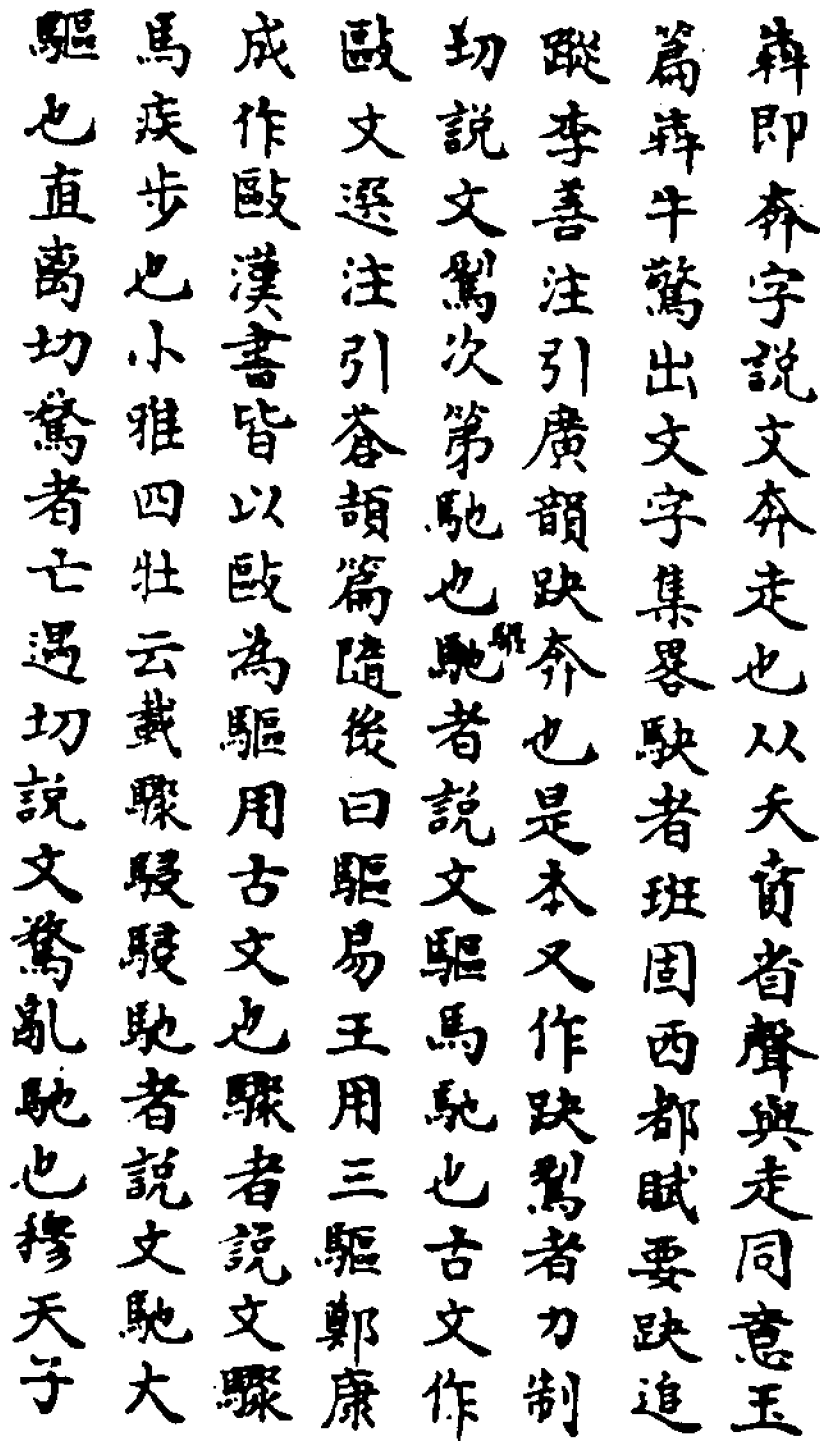 犇即奔字説文奔走也从夭賁省聲與走同意玉
篇犇牛驚出文字集畧駃者班固西都賦要趹追
蹤李善注引廣韻趹奔也是本又作趹鴷者力制
切説文鴷次第馳也馳驅者説文驅馬馳也古文作
敺文選注引蒼頡篇隨後曰驅易王用三驅鄭康
成作敺漢書皆以敺為驅用古文也驟者説文驟
馬疾步也小雅四牡云載驟駸駸馳者説文馳大
驅也直离切騖者亡遇切説文騖亂馳也穆天子